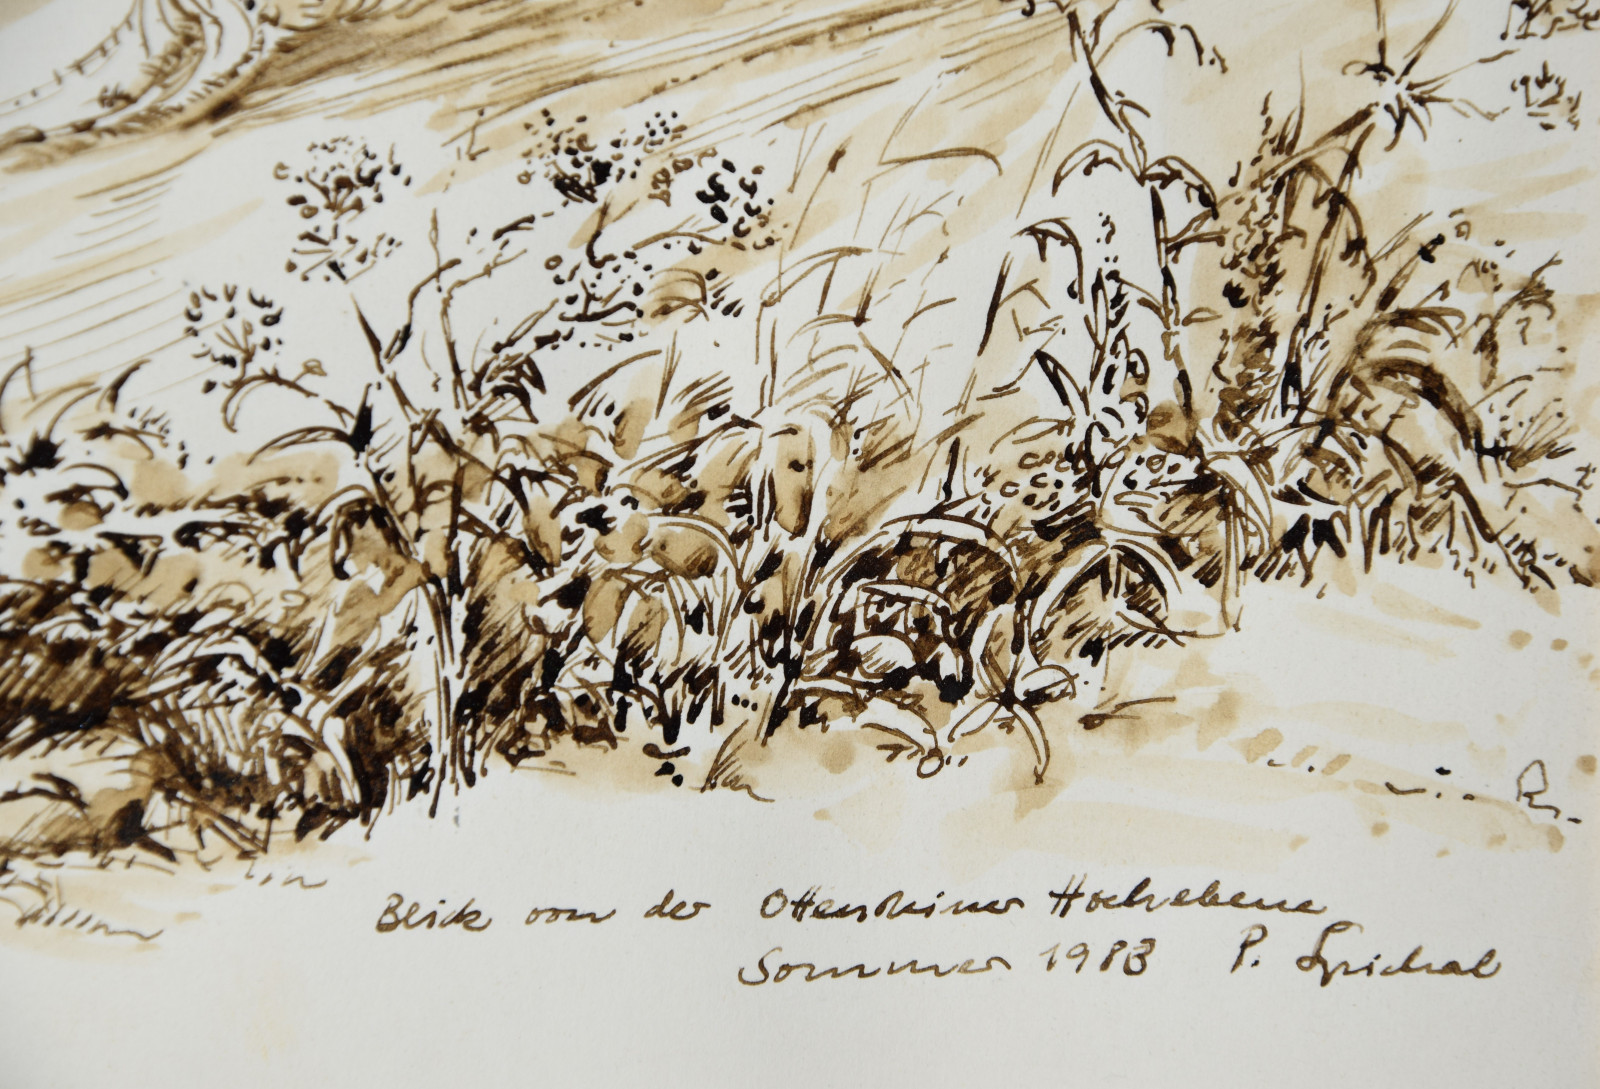 Blick von der Ottensteiner Hochebene
Sommer 1983 P.